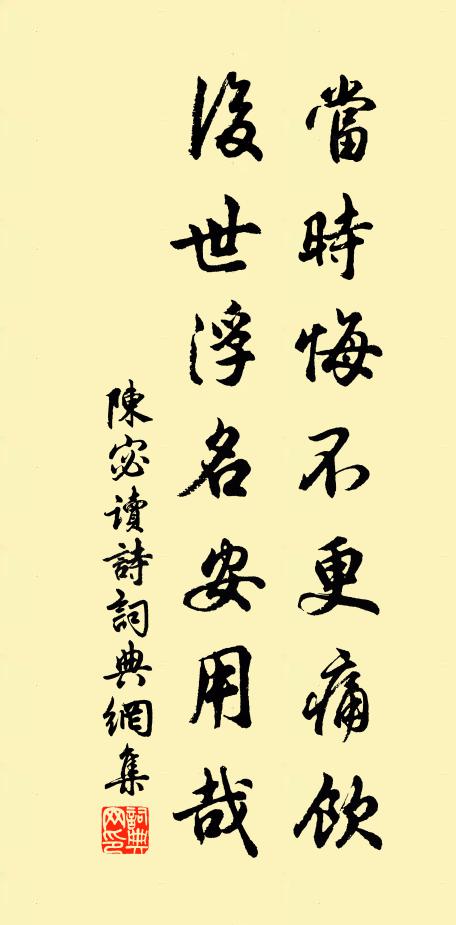 當時悔不更痛飲
後世浮名安用哉
陳宓讀詩詞典網集
詞典網印